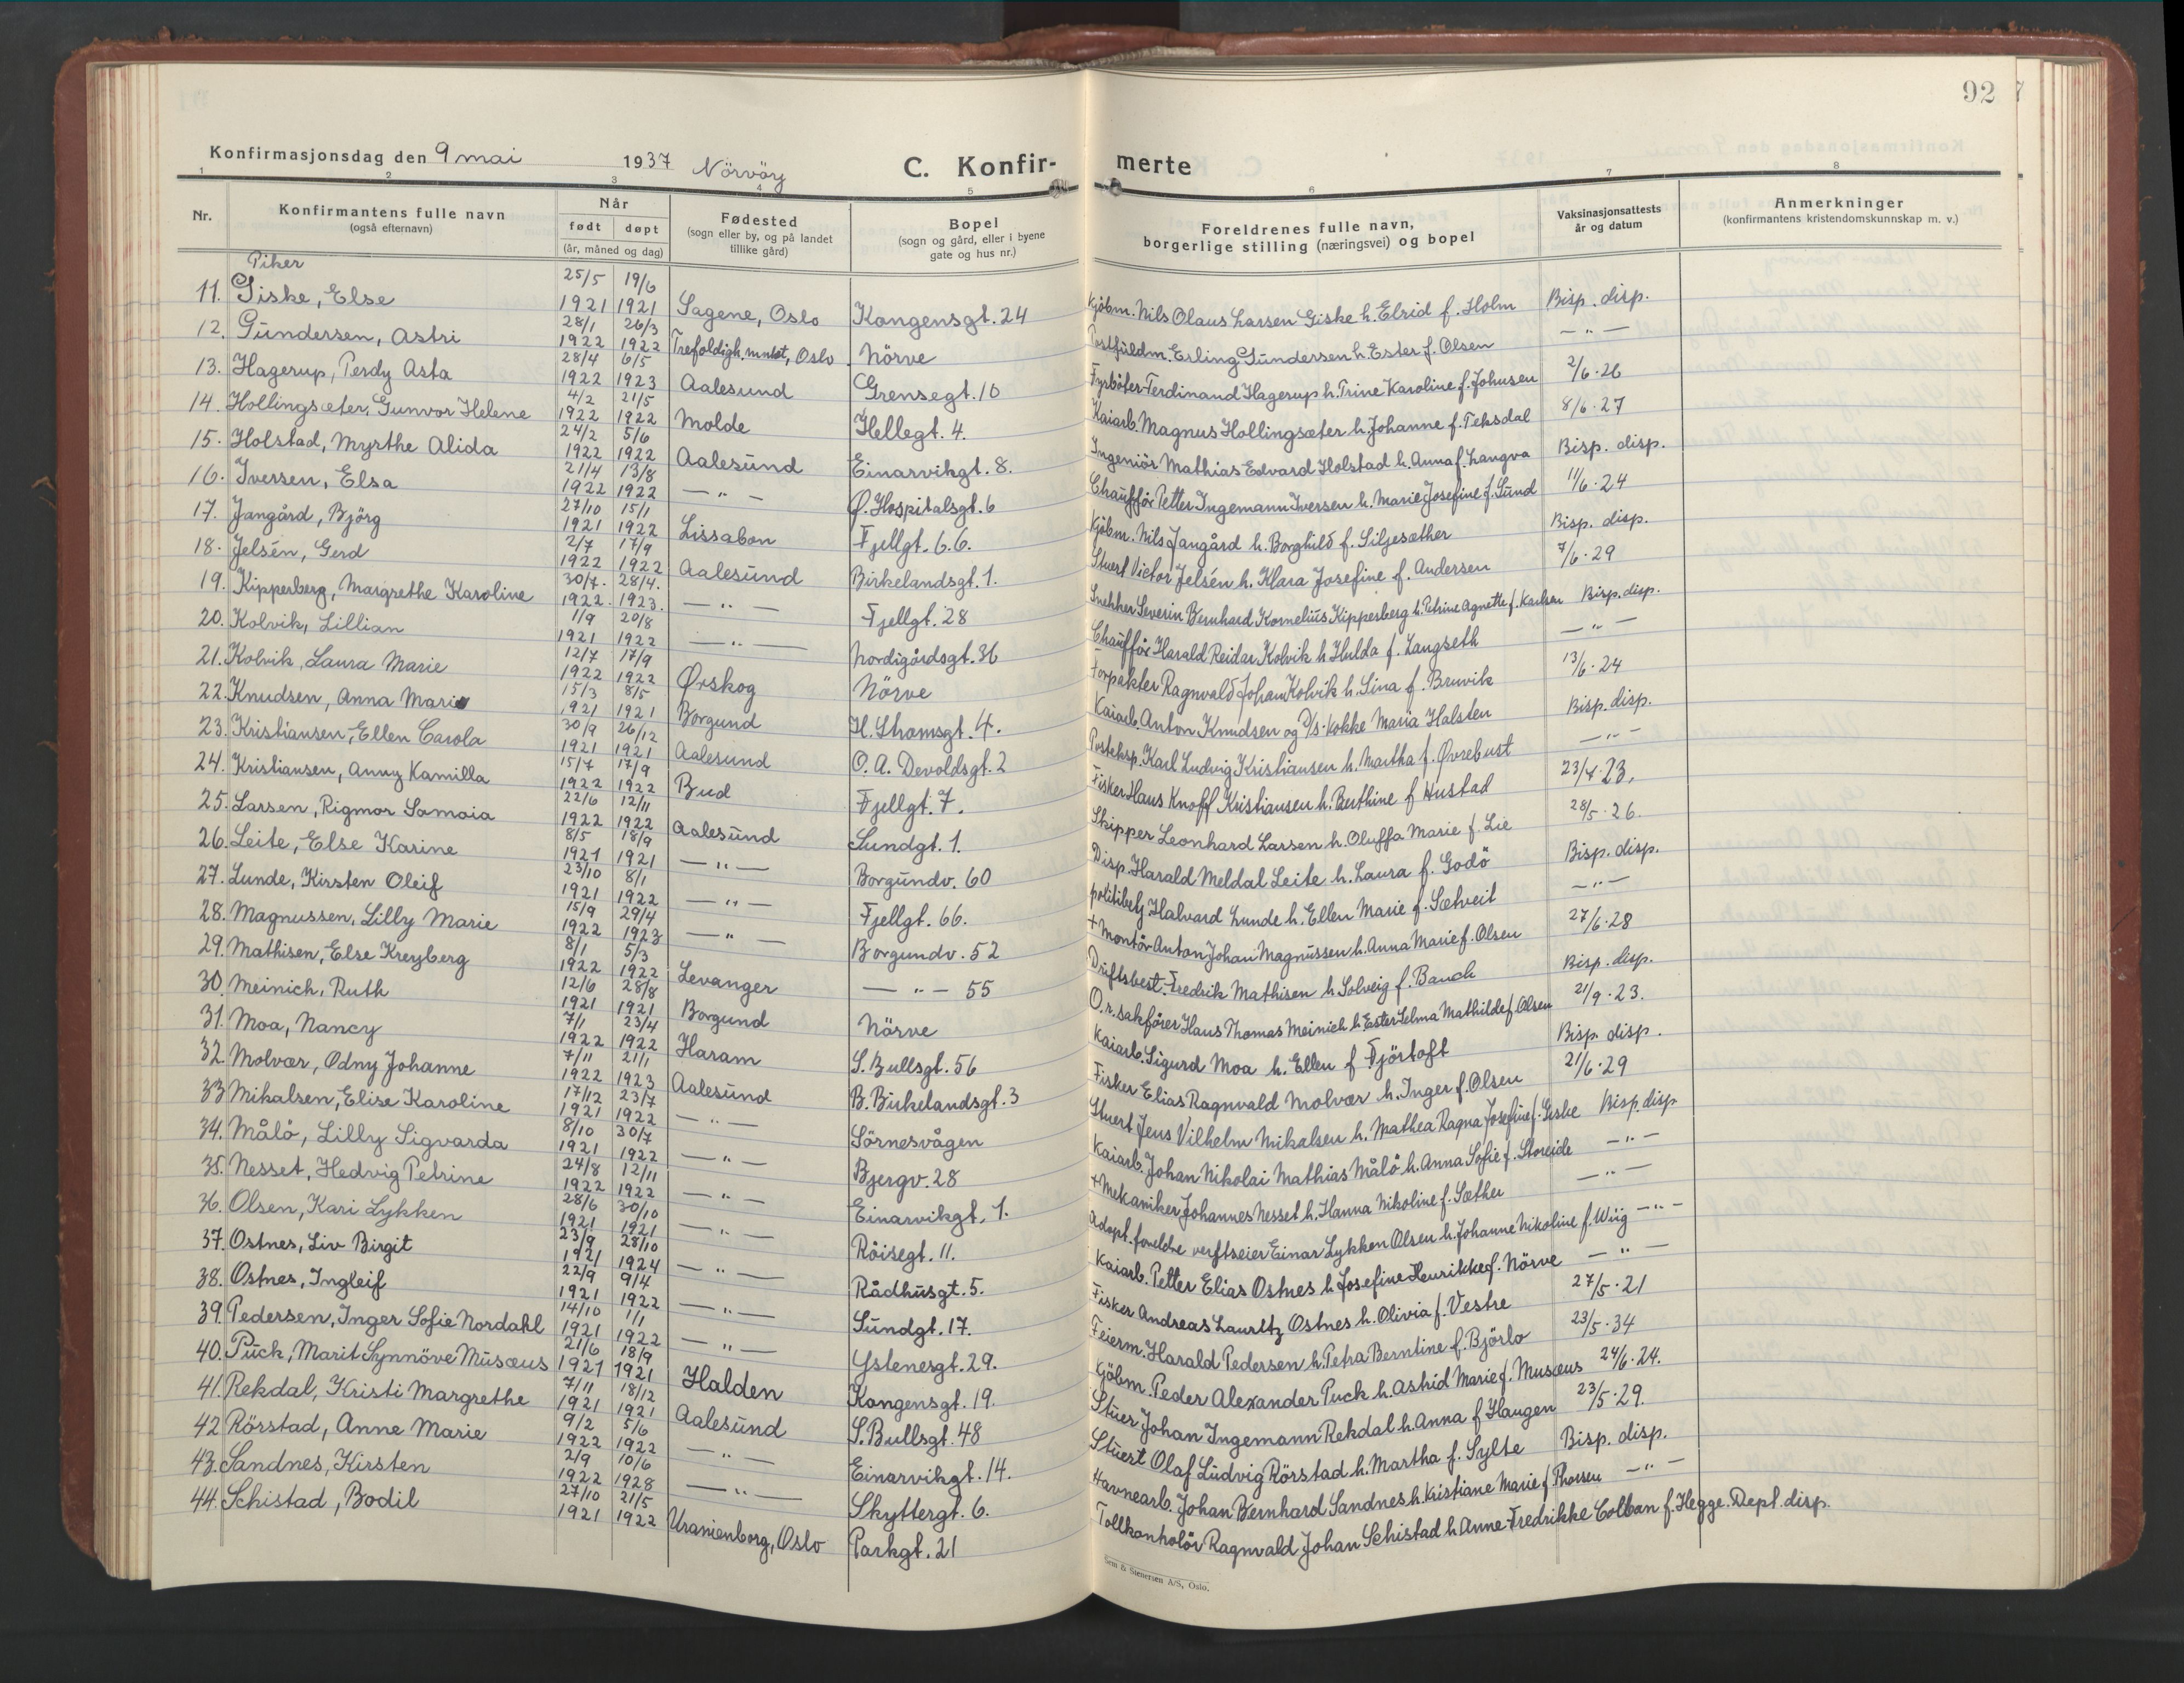 92
Konfirmasjonsdag den 9 mai 1937 Nörvöy C. Konfir- merte
1 2 3 4 5 6 7 8
Nr. Konfirmantens fulle navn (også efternavn) Når født døpt (år, måned og dag) Fødested (sogn eller by, og på landet tillike gård) Bopel (sogn og gård, eller i byene gate og hus nr.) Foreldrenes fulle navn, borgerlige stilling (næringsvei) og bopel Vaksinasjonsattests år og datum Anmerkninger (konfirmantens kristendomskunnskap m. v.)
Piker
11. Giske, Else 25/5 1921 19/6 1921 Sagene, Oslo Kongensgt. 24 Kjöbm. Nils Olaus Larsen Giske h. Elrid f. Holm Bisp. disp.
12. Gundersen, Astri 28/1 1922 26/3 1922 Trefoldigh. Oslo Nörve Erling Gundersen h. Ester f. Olsen — " —
13. Hagerup, Perdy Asta 28/4 1922 6/5 1923 Aalesund Grensegt. 10 Fyrböter Ferdinand Hagerup h. Trine Karoline f. Johnsen 2/6.26
14. Hollingsæter, Gunvor Helene 4/2 1922 21/5 1922 Molde Hellegt. 4. Kaiarb. Magnus Hollingsæter h. Johanne f. Teksdal 8/6.27
15. Holstad, Myrthe Alida 24/2 1922 5/6 1922 Aalesund Einarvikgt. 8. Ingeniör Mathias Edvard Holstad h. Anna f. Langva Bisp. disp.
16. Iversen, Elsa 21/4 1922 13/8 1922 — " — Ø. Hospitalsgt. 6 Chauffför Petter Ingemann Iversen h. Marie Josefine f. Sund 11/6.24
17. Jangård, Björg 27/10 1921 15/1 1922 Lissabon Fjellgt. 6.6. Kjöbm. Nils Jangård h. Borghild f. Siljesæther Bisp. disp.
18. Jelsén, Gerd 2/7 1922 17/9 1922 Aalesund Birkelandsgt. 1. Stuert Victor Jelsén h. Klara Josefine f. Andersen 7/6.29
19. Kipperberg, Margrethe Karoline 30/7. 1922. 28/4. 1923. — " — Fjellgt. 28 Snekker Severin Bernhard Kornelius Kipperberg h. Petrine Agnette f. Karlsen Bisp. disp.
20. Kolvik, Lillian 1/9 1921 20/8 1922 — " — Nordigårdsgt. 36 Chaufför Harald Reidar Kolvik h Hulda f. Langseth — " —
21. Kolvik, Laura Marie 12/7 1922 17/9 1922 Ørskog Nörve Forpakter Ragnvald Johan Kolvik h. Lina f. Bruvik 13/6.24
22. Knudsen, Anna Marie 15/3 1921 8/5 1921 Borgund H. Strömsgt. 4. Kaiarb. Anton Knudsen og D/s. kokke Maria Halsten Bisp. disp.
23. Kristiansen, Ellen Carola 30/9 1921 26/12 1921 Aalesund O. A. Devoldsgt. 2 Karl Ludvig Kristiansen h. Martha f. Øvrebust — " —
24. Kristiansen, Anny Kamilla 15/7 1922 17/9 1922 Bud Fjellgt. 7. Fisker Hans Knoff Kristiansen h. Berthine f Hustad 23/4.23.
25. Larsen, Rigmor Samoia 22/6 1922 12/11 1922 Aalesund Sundgt. 1. Skipper Leonhard Larsen h. Oluffa Marie f. Lie 28/5.26.
26. Leite, Else Karine 8/5 1921 18/9 1921 — " — Borgundv. 60 Disp. Harald Meldal Leite h. Laura f. Godö Bisp. disp.
27. Lunde, Kirsten Oleif 23/10 1921 8/1 1922 — " — Fjellgt. 66. politibetj Halvard Lunde h. Ellen Marie f. Sætveit — " —
28. Magnussen, Lilly Marie 15/9 1922 29/4 1923 — " — Borgundv. 52 + Montör Anton Johan Magnussen h. Anna Marie f. Olsen 27/6.28
29. Mathisen, Else Kreyberg 8/1 1922 5/3 1922 Levanger — " — 55 Driftsbest. Fredrik Mathisen h Solveig f. Bauck Bisp. disp.
30. Meinich, Ruth 12/6 1921 28/8 1921 Borgund Nörve O.r. sakförer Hans Thomas Meinich h. Ester Selma Mathilde f. Olsen 21/9.23.
31. Moa, Nancy 7/1 1922 23/4 1922 Haram S. Bullsgt. 56 Kaiarb. Sigurd Moa h. Ellen f Fjörtoft Bisp. disp.
32. Molvær, Odny Johanne 7/11 1922 21/1 1923 Aalesund B. Birkelandsgt. 3 Fisker Elias Ragnvald Molvær h. Inger f. Olsen 21/6.29
33 Mikalsen, Elise Karoline 17/12 1921 23/7 1922 — " — Sörnesvågen Stuert Jens Vilhelm Mikalsen h. Mathea Ragna Josefine f. Giske Bisp. disp
34. Målö, Lilly Sigvarda 8/10 1921 30/7 1922 — " — Bjergv. 28 Kaiarb. Johan Nikolai Mathias Målö h. Anna Sofie f. Storeide — " —
35. Nesset, Hedvig Petrine 24/8 1922 12/11 1922 — " — Einarvikgt. 1. + Mekaniker Johannes Nesset h. Hanna Nikoline f. Sæther — " —
36. Olsen, Kari Lykken 28/6 1921 30/10 1921 — " — Röisegt. 11. Adopt. foreldre verftseier Einar Lykken Olsen h. Johanne Nikoline f. Wiig — " —
37. Ostnes, Liv Birgit 23/9 1921 28/10 1924 — " — Rådhusgt. 5. Kaiarb. Petter Elias Ostnes h Josefine Henrikke f. Nörve — " —
38. Ostnes, Ingleif 22/9 1921 9/4 1922 — " — Sundgt. 17. Fisker Andreas Lauritz Ostnes h. Olivia f. Vestre 27/5.21
39. Pedersen, Inger Sofie Nordahl 14/10 1921 1/1 1922 — " — Ystenesgt. 29. Feierm. Harald Pedersen h. Petra Berntine f. Björlo 23/5.34
40. Puck, Marit Synnöve Musæus 21/6 1921 18/9 1921 Halden Kongensgt. 19. Kjöbm. Peder Alexander Puck h. Astrid Marie f. Musæus 24/6.24.
41. Rekdal, Kristi Margrethe 7/11 1921 18/12 1921 Aalesund S. Bullsgt. 48 Stuer Johan Ingemann Rekdal h. Anna f Haugen 23/5.29.
42 Rörstad, Anne Marie 9/2 1922 5/6 1922 — " — Einarvikgt. 14. Stuert Olaf Ludvig Rörstad h. Martha f. Sylte Bisp. disp.
43. Sandnes, Kirsten 2/9 1922 10/6 1928 — " — Skyttergt. 6. Havnearb. Johan Bernhard Sandnes h. Kristiane Marie f. Thorsen — " —
44. Schistad, Bodil 27/10 1921 21/5 1922 Uranienborg, Oslo Parkgt. 21 Tollkontrolör Ragnvald Johan Schistad h Anne Fredrikke Colban f. Hegge. Dept. disp.
Sem & Stenersen A/S, Oslo.